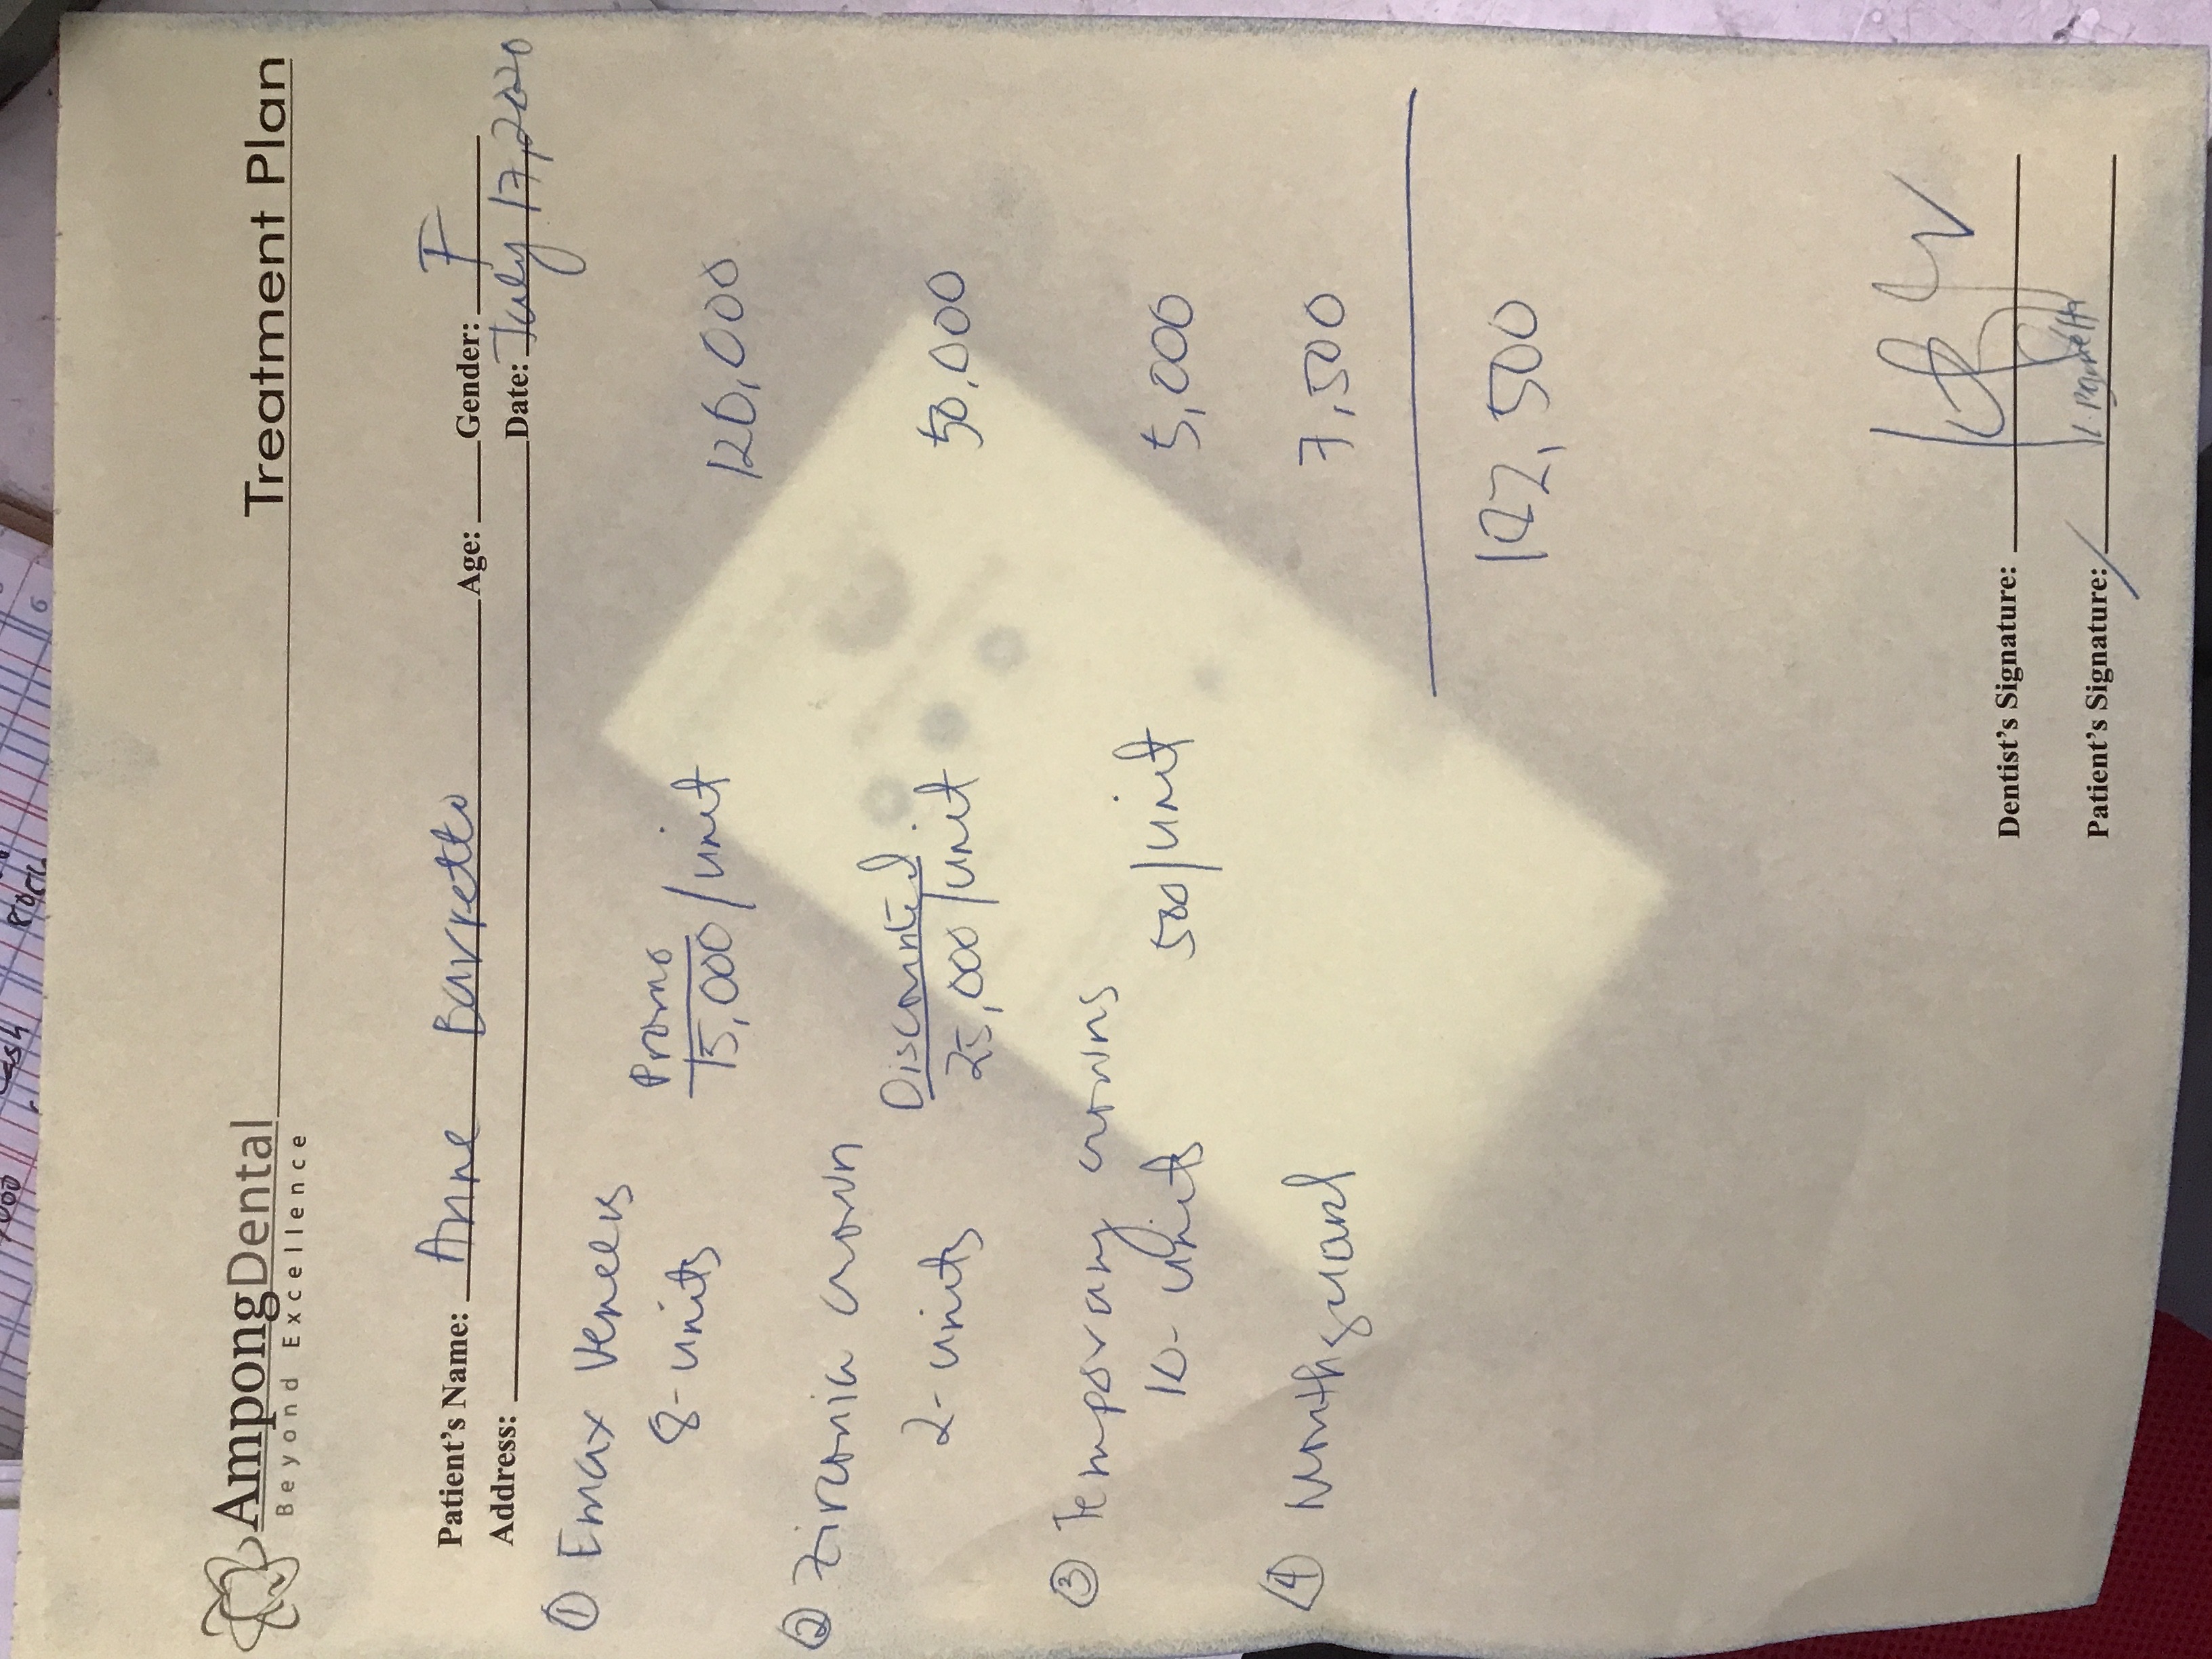 AmpongDental
Beyond Excellence
Treatment Plan
Patient's Name: Anne Barretto Age: Gender: F
Address: Date: July 17, 2020
① Emax Veneers
Promo
8-units 15,000/unit 120,000
② Zirconia crown
Discounted
2-units 25,000/unit 50,000
③ Temporary crowns
10-units 500/unit 5,000
④ Mouthguard 7,500
182,500
Dentist's Signature:
Patient's Signature: